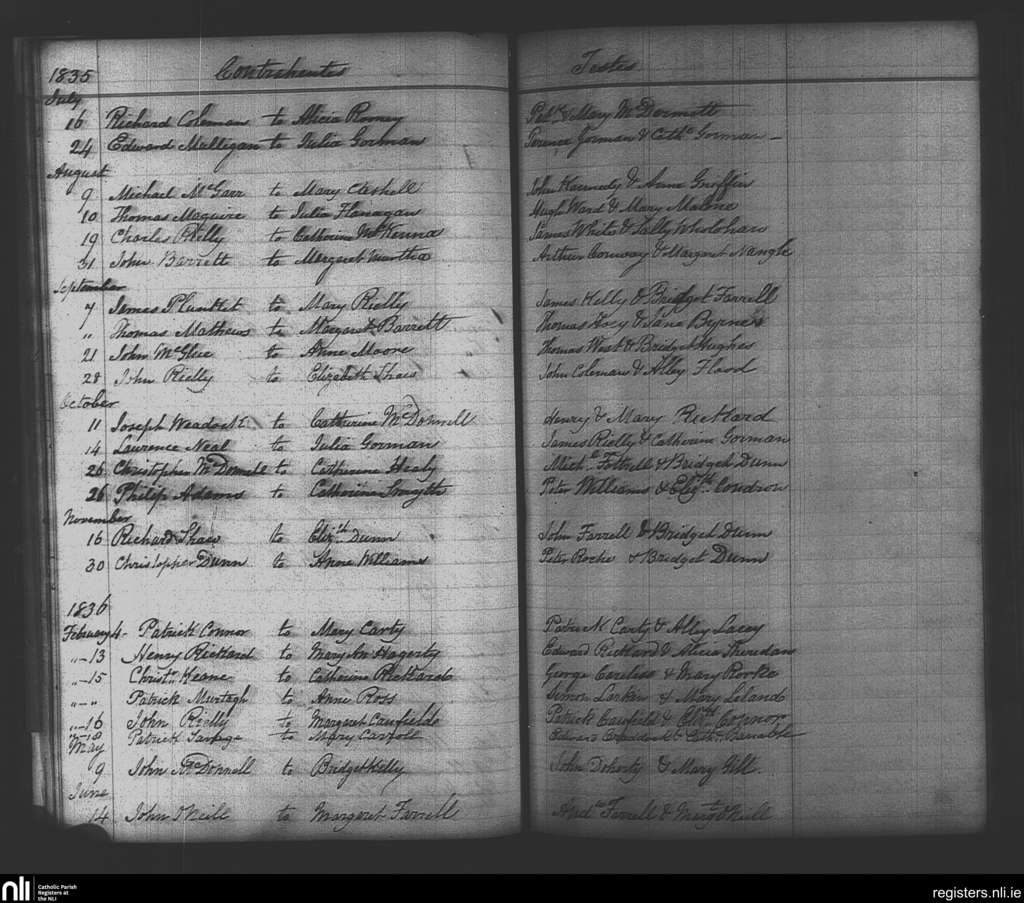 1835 Contrahentes Testes
July
16 Richard Coleman to Alicia Rooney Patk. & Mary McDermott
24 Edward Mulligan to Julia Gorman Terence Gorman & Cathe. Gorman
August
9 Michael McGarr to Mary Cashell John Kennedy & Anne Griffin
10 Thomas Maguire to Julia Flanagan Hugh Ward & Mary Malone
19 Charles Rielly to Catherine McKenna James White & Sally Wholohan
31 John Barrett to Margaret Murtha Arthur Conway & Margret Nangle
September
7 James Plunket to Mary Rielly James Kelly & Bridget Farrell
" Thomas Mathews to Margaret Barrett Thomas Hoey & Jane Byrnes
21 John McGlue to Anne Moore Thomas West & Bridget Hughes
28 John Rielly to Elizabeth Shaw John Coleman & Alley Flood
October
11 Joseph Weadock to Catherine McDonnell Henry & Mary Rickard
14 Laurence Neal to Julia Gorman James Rielly & Catherine Gorman
26 Christopher McDonnell to Catherine Healy Mich. & Bridget Dunn
26 Philip Adams to Catherine Smyth Peter Williams & Elizth. Condron
November
16 Richard Shaw to Elizth. Dunn John Farrell & Bridget Dunn
30 Christopher Dunn to Anne Williams Peter Roche & Bridget Dunn
1836
February 4 - Patrick Connor to Mary Carty Patrick Carty & Alley Lacey
" - 13 Henry Rickard to Mary An Hagerty Edward Rickard & Alicia Sheridan
" - 15 Christr. Keane to Catherine Rickard George Careless & Mary Rorke
" - " Patrick Murtagh to Anne Ross Simon Larkin & Mary Leland
" - 16 John Rielly to Margaret Caufield Patrick Caufield & Elizth. Connor
" 18 Patrick Savage to Mary Carroll Edward & Cath.
May
9 John McDonnell to Bridget Kelly John Doherty & Mary Gill.
June
14 John O'Neill to Margaret Farrell Farrell & Margt. O'Neill
nli Catholic Parish
Registers at
the NLI
registers.nli.ie